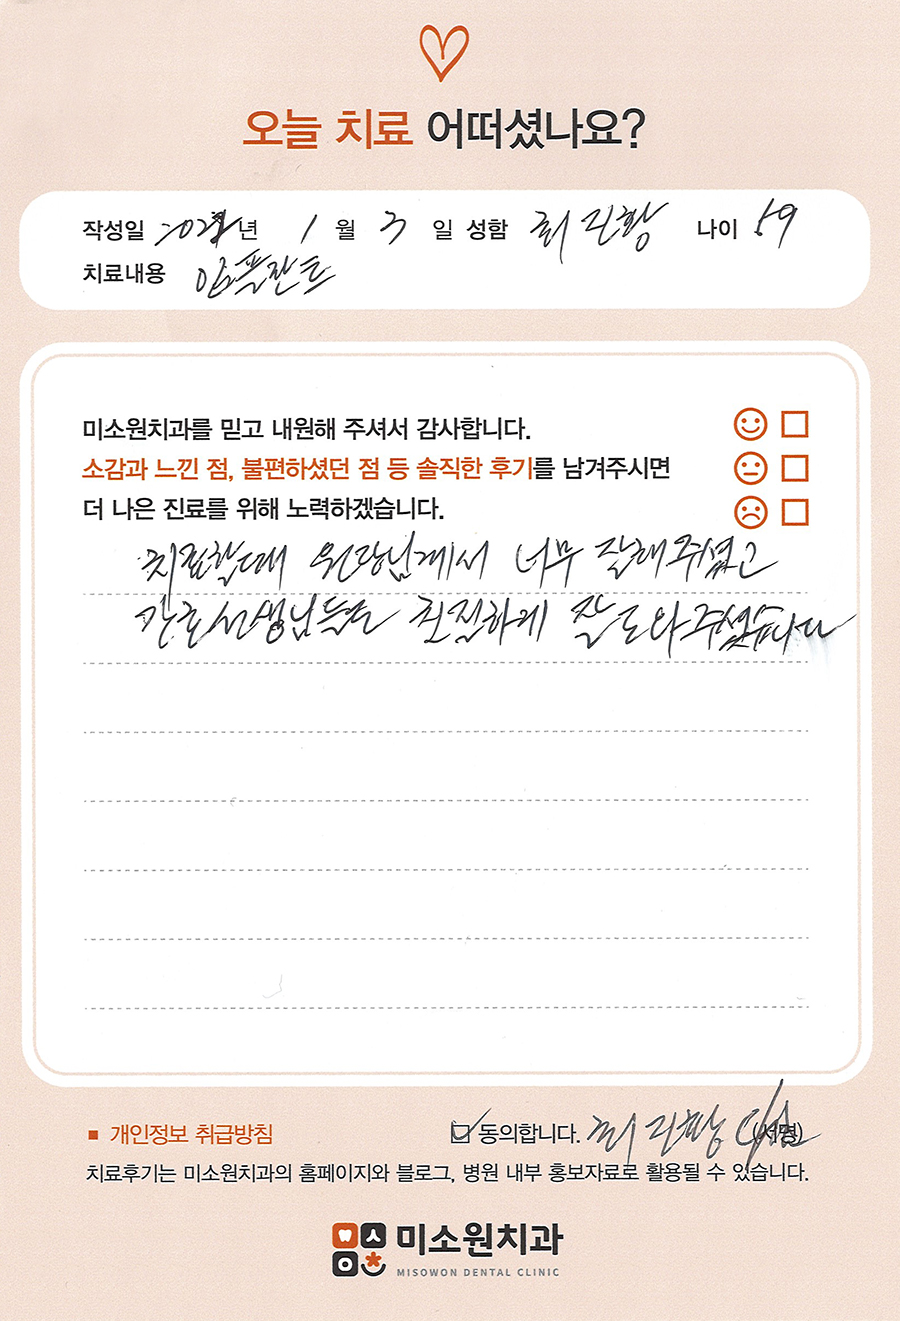 오늘 치료 어떠셨나요?
작성일 2021년 1월 3일 성함 최진황 나이 59
치료내용 임플란트
미소원치과를 믿고 내원해 주셔서 감사합니다.
소감과 느낀 점, 불편하셨던 점 등 솔직한 후기를 남겨주시면
더 나은 진료를 위해 노력하겠습니다.
치료할때 원장님께서 너무 잘해주셨고
간호선생님들도 친절하게 잘 도와주셨습니다
■ 개인정보 취급방침 동의합니다. 최진황 (서명)
치료후기는 미소원치과의 홈페이지와 블로그, 병원 내부 홍보자료로 활용될 수 있습니다.
미소원치과
MISOWON DENTAL CLINIC